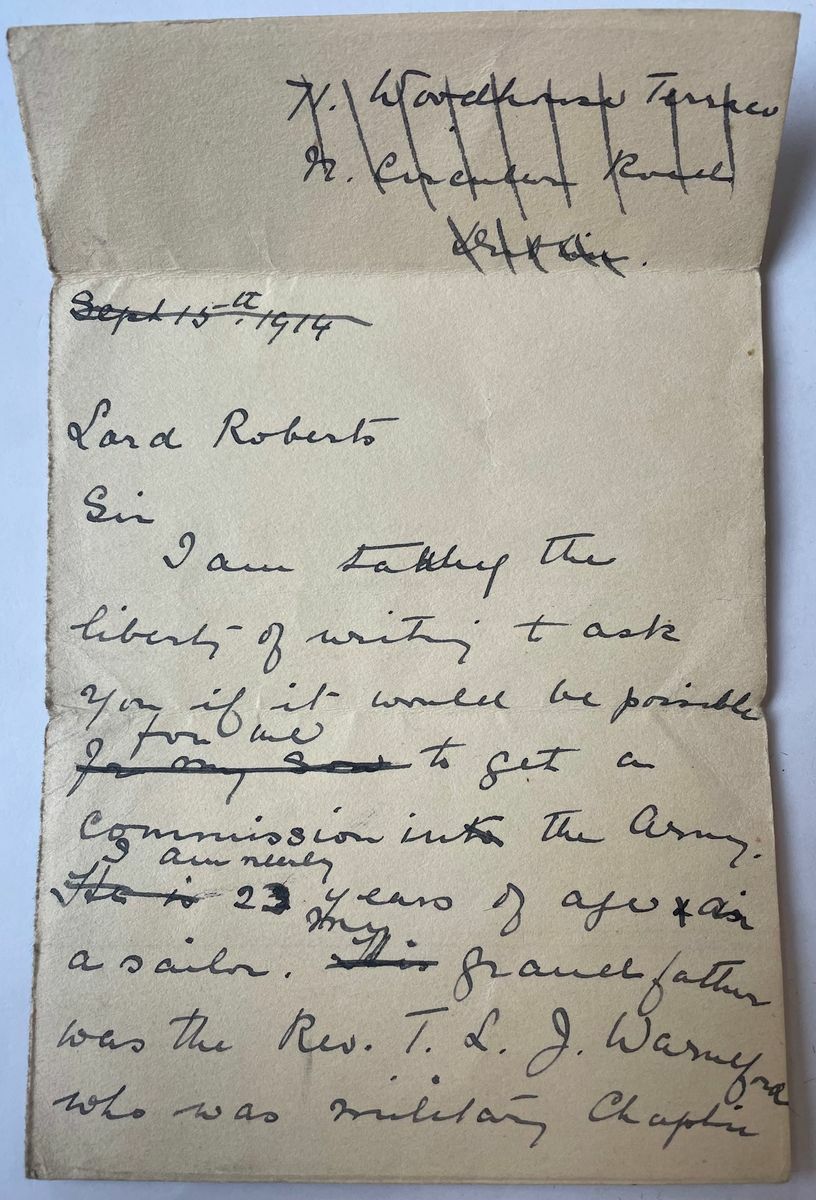 Woodhouse Terrace
N. Circular Road
Dublin.
Sept 15th. 1914
Lord Roberts
Sir
I am taking the
liberty of writing to ask
you if it would be possible
for me
for my son to get a
commission into the Army.
I am nearly
He is 23 years of age & am
my
a sailor. His grandfather
was the Rev. T. L. J. Warneford
who was military Chaplin